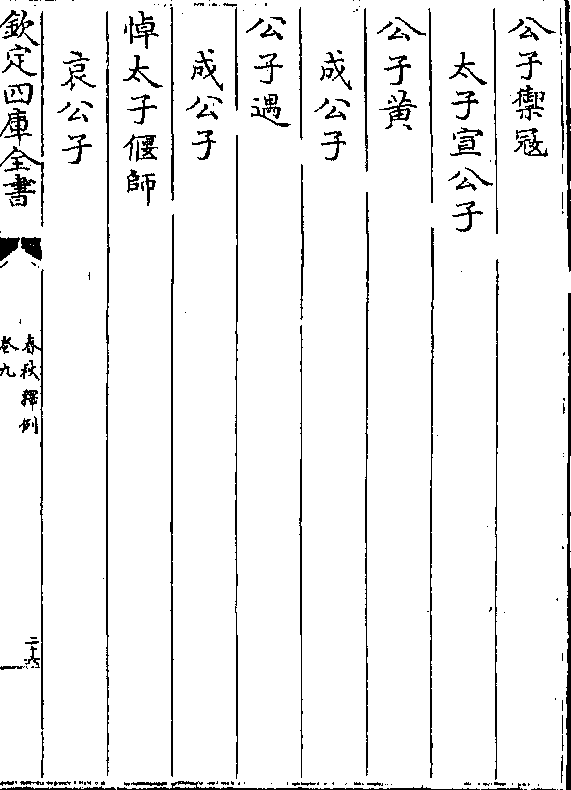 公子禦冦
太子宣公子
公子黄
成公子
公子遇
成公子
悼太子偃師
哀公子
欽定四庫全書
春秋釋例
卷九
二十六